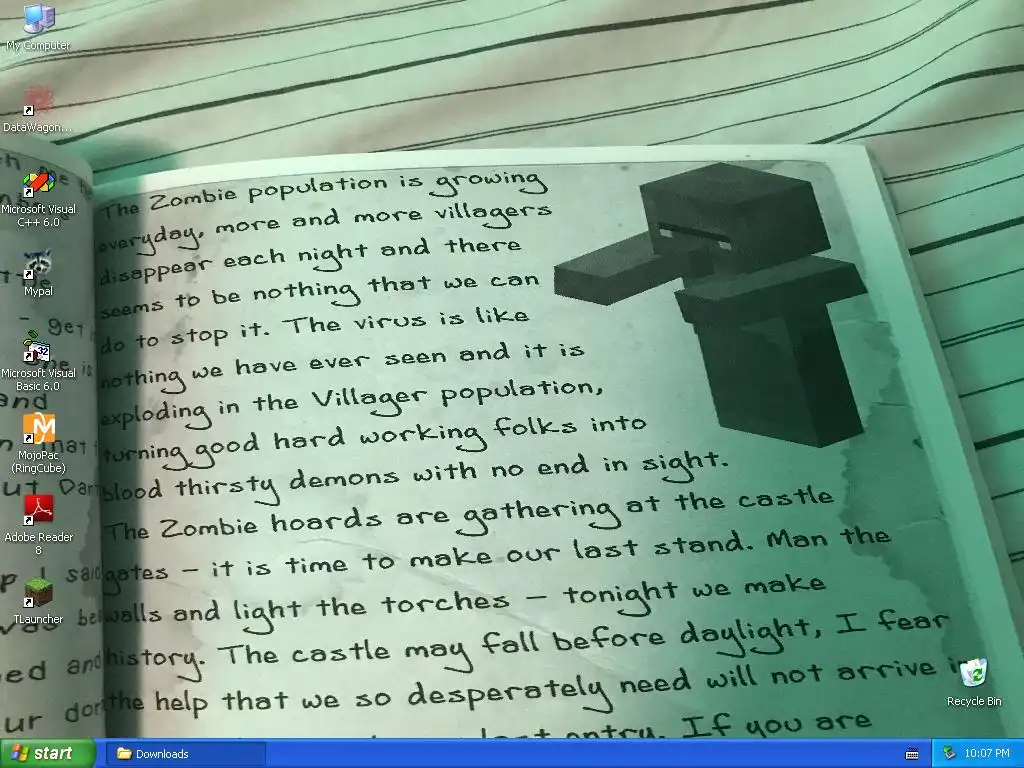 My Computer
DataWagon...
Microsoft Visual
C++ 6.0
Mypal
Microsoft Visual
Basic 6.0
MojoPac
(RingCube)
Adobe Reader
8
TLauncher
The Zombie population is growing
everyday, more and more villagers
disappear each night and there
seems to be nothing that we can
do to stop it. The virus is like
nothing we have ever seen and it is
exploding in the Villager population,
turning good hard working folks into
blood thirsty demons with no end in sight.
The Zombie hoards are gathering at the castle
gates – it is time to make our last stand. Man the
walls and light the torches – tonight we make
history. The castle may fall before daylight, I fear
the help that we so desperately need will not arrive
If you are
Recycle Bin
start
Downloads
10:07 PM